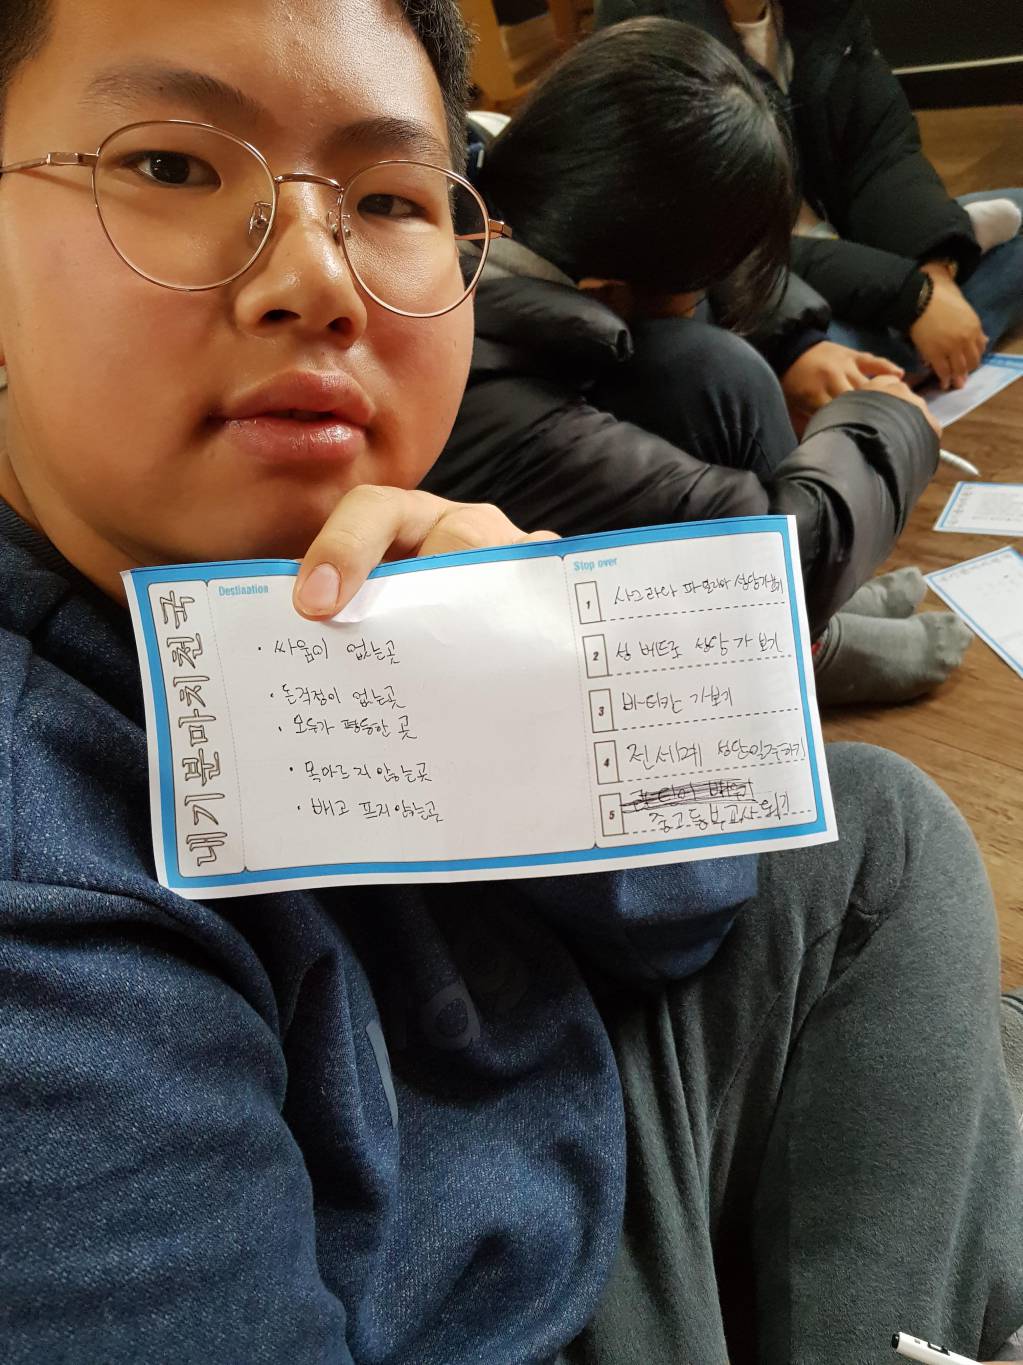 내기분마치천국
Destination
· 싸움이 없는곳
· 돈걱정이 없는곳
· 모두가 평등한 곳
· 목마르지 않는곳
· 배고프지않는곳
Stop over
1 사그라다 파밀리아 성당가보기
2 성 베드로 성당 가보기
3 바티칸 가보기
4 전세계 성당일주하기
5 중고등부교사 하기